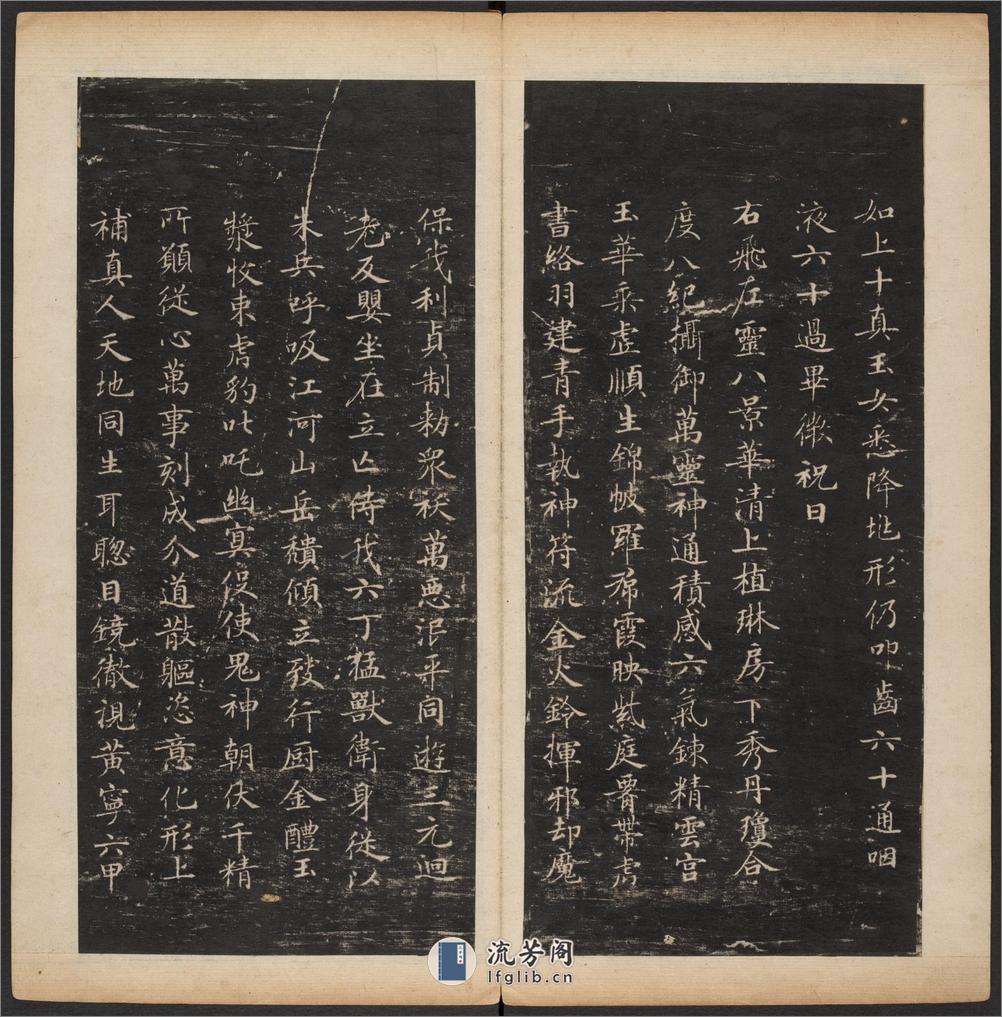 如上十真玉女悉降地形仍叩齒六十通咽
液六十過畢微祝曰
右飛左靈八景華清上植琳房下秀丹瓊合
度八紀攝御萬靈神通積感六氣鍊精雲宮
玉華乘虛順生錦帔羅霞映紫庭帶虎
書絡羽建青手執神符流金火鈴揮邪却魔
保我利貞制勅眾祅萬惡泯平同遊三元迴
老反嬰坐在立亡侍我六丁猛獸衛身從以
朱兵呼吸江河山岳穨傾立致行厨金醴玉
漿牧束虎豹叱吒幽冥役使鬼神朝伏千精
所願從心萬事刻成分道散軀恣意化形上
補真人天地同生耳聰目鏡徹視黃寧六甲
流芳阁
lfglib.cn